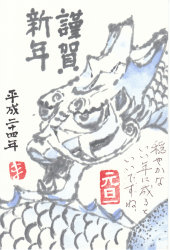 謹賀
新年
平成二十四年
元旦
穏やかな
いい年に成ると
いいですね